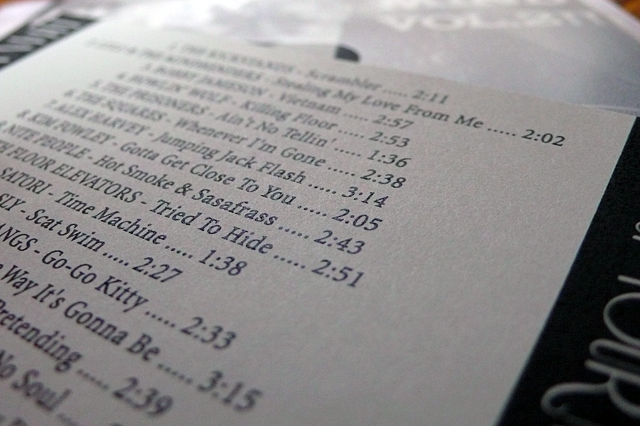 1. THE KICKSTANDS - Scrambler ..... 2:11
MINDBENDERS - Stealing My Love From Me ..... 2:02
3. BOBBY JAMESON - Vietnam ..... 2:57
4. HOWLIN' WOLF - Killing Floor ..... 2:53
5. THE PRISONERS - Ain't No Tellin' ..... 1:36
6. THE SQUARES - Whenever I'm Gone ..... 2:38
7. ALEX HARVEY - Jumping Jack Flash ..... 3:14
8. KIM FOWLEY - Gotta Get Close To You ..... 2:05
NITE PEOPLE - Hot Smoke & Sasafrass ..... 2:43
TH FLOOR ELEVATORS - Tried To Hide ..... 2:51
SATORI - Time Machine ..... 1:38
SLY - Scat Swim ..... 2:27
ANGS - Go-Go Kitty ..... 2:33
Way It's Gonna Be ..... 3:15
Pretending ..... 2:39
No Soul ....
VOL.